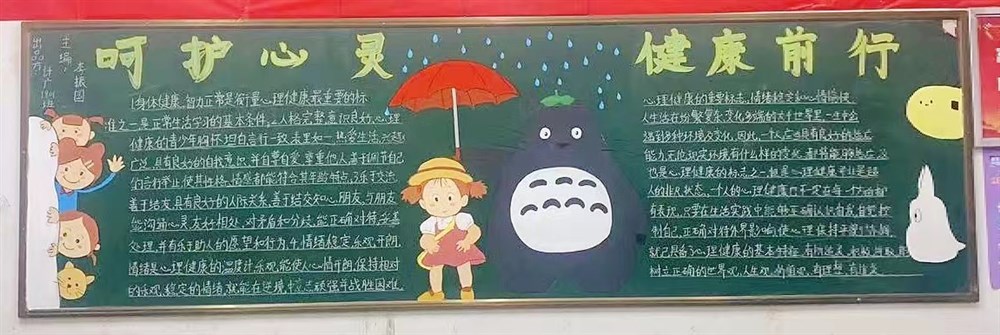 呵护心灵 健康前行
主编：李振国
出品方：
1身体健康，智力正常是衡量心理健康最重要的标
准之一是正常生活学习的基本条件，2人格完整意识良好，心理
健康的青少年胸怀坦白言行一致表里如一热爱生活兴趣
广泛具有良好的自我意识并自尊自爱尊重他人善于调节自己
的言行举止，使其性格、情感都能符合其年龄特点，3乐于交往
善于结友，具有良好的人际关系，善于结交知心朋友，与朋友
能沟通心灵友好相处，对矛盾和分歧，能正确对待妥善
处理，并有乐于助人的愿望和行为4，情绪稳定乐观开朗，
情绪是心理健康的温度计，乐观，能使人心情开朗，保持相对
的乐观，稳定的情绪，就能在逆境中，顽强并战胜困难
心理健康的重要标志，情绪稳定和心情愉快
人生活在纷繁复杂变化多端的大千世界里一生中会
遇到多种环境及变化，因此，一个人应当具有良好的适应
能力，无论现实环境有什么样的变化，都将能够适应，这
也是心理健康的标志之一但是心理健康并非是超
人的非凡状态，一个人的心理健康也不一定在每一个方面都
有表现，只要在生活实践中能够正确认识自我，自觉控
制自己，正确对待外界影响使心理保持平衡协调，
就已具备了心理健康的基本特征
树立正确的世界观，人生观，价值观，有理想，